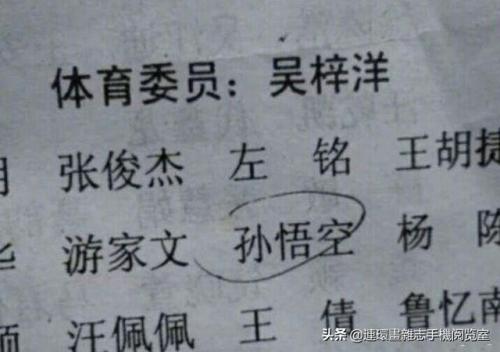 体育委员：吴梓洋
张俊杰 左 铭 王胡捷
游家文 孙悟空 杨 陈
汪佩佩 王 倩 鲁忆南
头条 @連環畫雜志手機阅览室